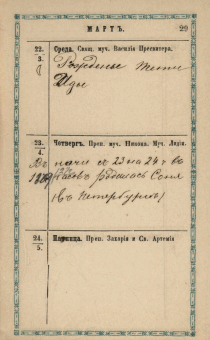 МАРТЪ. 29
22. Среда. Свящ. муч. Василія Пресвитера.
3.
Рожденье Тети
Иды
23. Четвергъ. Преп. муч. Никона. Муч. Лидіи.
4.
Въ ночи съ 23 на 24 г въ
часовъ родилась Соня
(въ Петербургѣ)
24. Пятница. Преп. Захарія и Св. Артемія
5.